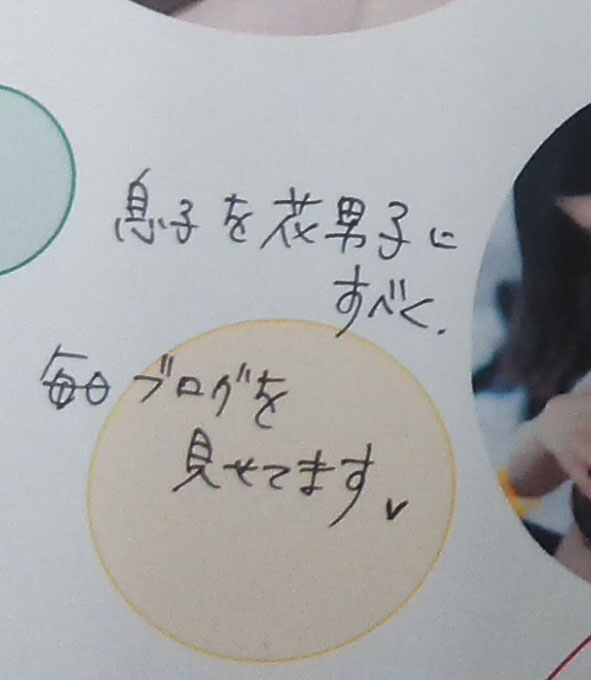 息子を花男子に
すべく.
毎日ブログを
見せてます♥